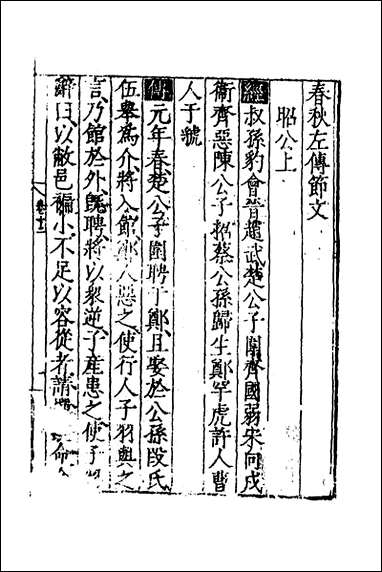 春秋左傳節文
昭公上
經叔孫豹會晉趙武楚公子圍齊國弱宋向戌
衞齊惡陳公子招蔡公孫歸生鄭罕虎許人曹
人于虢
傳元年春楚公子圍聘于鄭且娶於公孫段氏
伍舉爲介將入館鄭人惡之使行人子羽與之
言乃館於外旣聘將以衆逆子產患之使子
辭曰以敝邑褊小不足以容從者請 命
卷十二